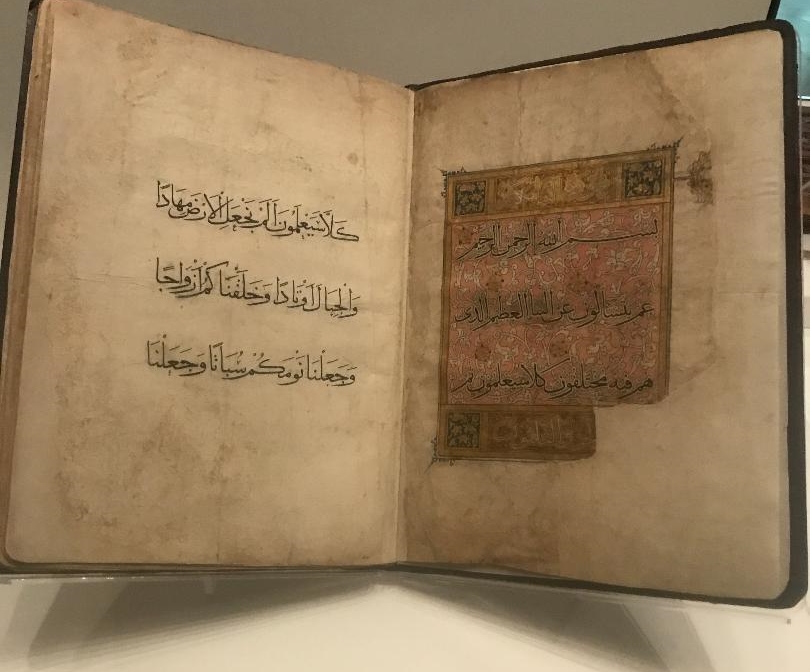 بسم الله الرحمن الرحيم
عم يتسالون عن النبا العظيم الذى
هم فيه مختلفون كلا سيعلمون ثم
كَلَّا سَيَعْلَمُونَ أَلَمْ نَجْعَلِ الْأَرْضَ مِهَادًا
وَالْجِبَالَ أَوْتَادًا وَخَلَقْنَاكُمْ أَزْوَاجًا
وَجَعَلْنَا نَوْمَكُمْ سُبَاتًا وَجَعَلْنَا